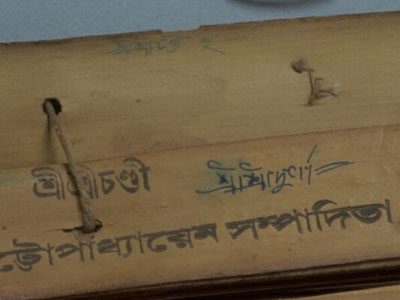 শ্রীশ্রীচণ্ডী শ্রীশ্রীদুর্গা
ট্টোপাধ্যায়েন সম্পাদিতা